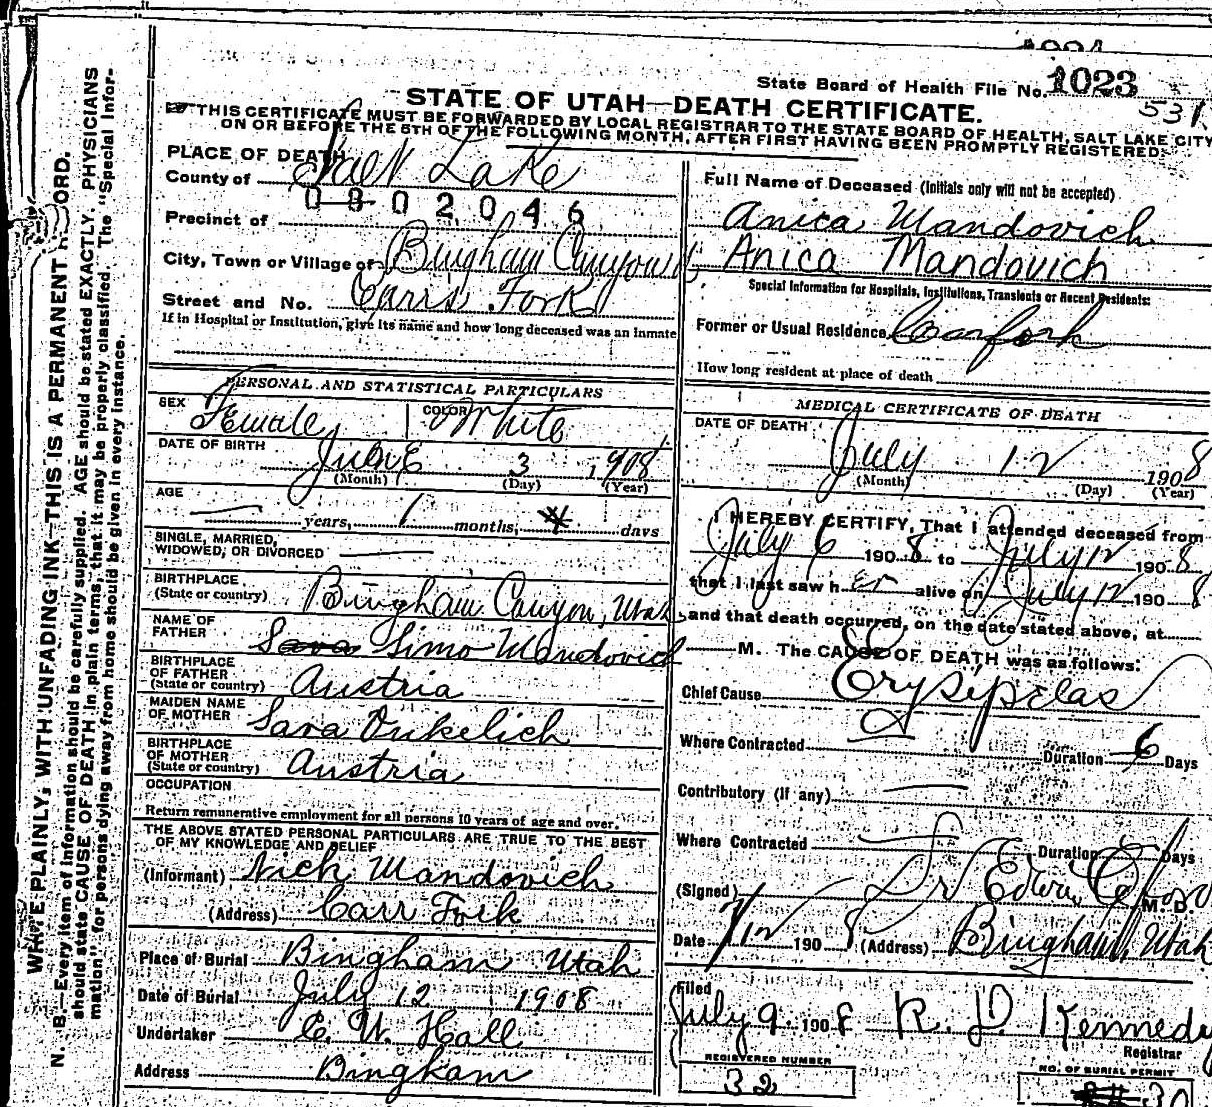 State Board of Health File No. 1023
531
STATE OF UTAH—DEATH CERTIFICATE.
THIS CERTIFICATE MUST BE FORWARDED BY LOCAL REGISTRAR TO THE STATE BOARD OF HEALTH, SALT LAKE CITY
ON OR BEFORE THE 5TH OF THE FOLLOWING MONTH, AFTER FIRST HAVING BEEN PROMPTLY REGISTERED.
WRITE PLAINLY, WITH UNFADING INK—THIS IS A PERMANENT RECORD.
N. B.—Every item of information should be carefully supplied. AGE should be stated EXACTLY. PHYSICIANS
should state CAUSE OF DEATH in plain terms, that it may be properly classified. The "Special Infor-
mation" for persons dying away from home should be given in every instance.
PLACE OF DEATH
County of Salt Lake
0802046
Precinct of
City, Town or Village of Bingham Canyon
Street and No. Carrs Fork
If in Hospital or Institution, give its name and how long deceased was an inmate
PERSONAL AND STATISTICAL PARTICULARS
SEX Female COLOR White
DATE OF BIRTH June 3, 1908
(Month) (Day) (Year)
AGE
years, 1 months, days
SINGLE, MARRIED,
WIDOWED, OR DIVORCED
BIRTHPLACE
(State or country) Bingham Canyon, Utah
NAME OF
FATHER Sava Simo Mandovich
BIRTHPLACE
OF FATHER
(State or country) Austria
MAIDEN NAME
OF MOTHER Sara Vukelich
BIRTHPLACE
OF MOTHER
(State or country) Austria
OCCUPATION
Return remunerative employment for all persons 10 years of age and over.
THE ABOVE STATED PERSONAL PARTICULARS ARE TRUE TO THE BEST
OF MY KNOWLEDGE AND BELIEF
(Informant) Nick Mandovich
(Address) Carr Fork
Place of Burial Bingham Utah
Date of Burial July 12 1908
Undertaker E. W. Hall
Address Bingham
Full Name of Deceased (Initials only will not be accepted)
Anica Mandovich
Anica Mandovich
Special Information for Hospitals, Institutions, Transients or Recent Residents:
Former or Usual Residence Carrfork
How long resident at place of death
MEDICAL CERTIFICATE OF DEATH
DATE OF DEATH
July 12 1908
(Month) (Day) (Year)
I HEREBY CERTIFY, That I attended deceased from
July 6 1908 to July 12 1908
that I last saw her alive on July 12 1908
and that death occurred, on the date stated above, at
M. The CAUSE OF DEATH was as follows:
Chief Cause Erysipelas
Where Contracted Duration 6 Days
Contributory (if any)
Where Contracted Duration Days
(Signed) Dr M. D.
Date 7/12 1908 (Address) Bingham, Utah
Filed
July 9 1908 R. D. Kennedy
Registrar
REGISTERED NUMBER
32
NO. OF BURIAL PERMIT
30